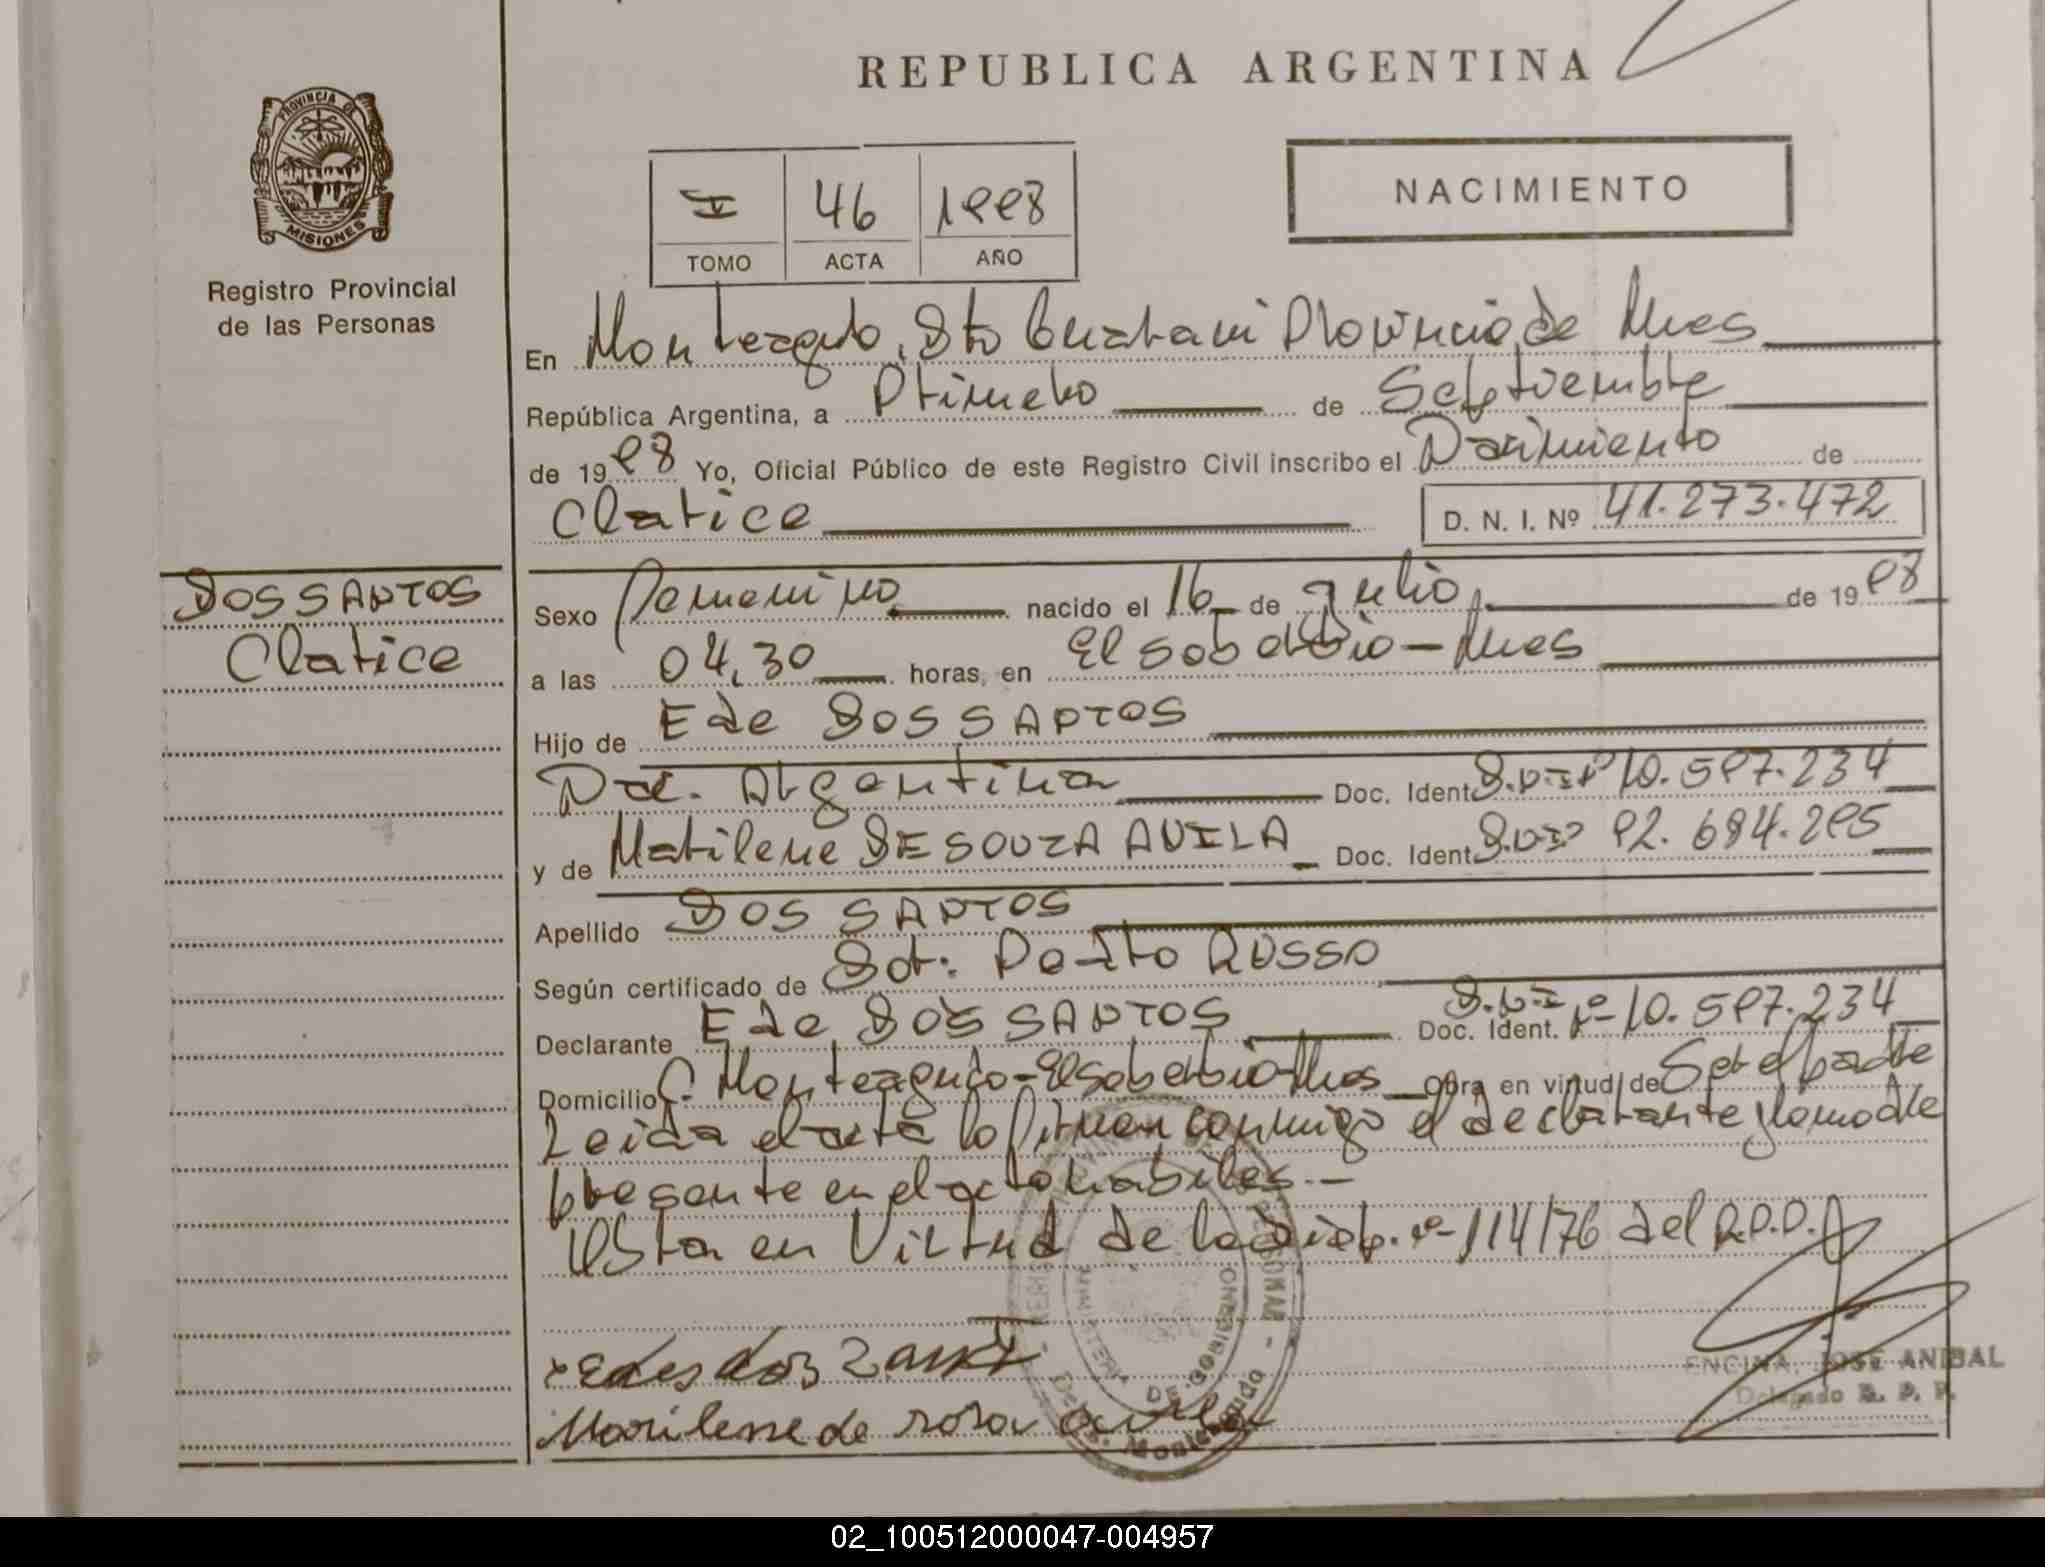 REPUBLICA ARGENTINA
PROVINCIA DE
MISIONES
Registro Provincial
de las Personas
I 46 1998
TOMO ACTA AÑO
NACIMIENTO
En Monteagudo, Dto Guarani Provincia de Mnes
República Argentina, a Primero de Septiembre
de 1998 Yo, Oficial Público de este Registro Civil inscribo el Nacimiento de
Clarice D. N. I. Nº 41.273.472
DOS SANTOS
Clarice
Sexo Femenino nacido el 16 de Julio de 1998
a las 04,30 horas, en El Soberbio - Mnes
Hijo de Ede DOS SANTOS
Nac. Argentina Doc. Ident. D.N.I Nº 10.597.234
y de Marilene DE SOUZA AVILA Doc. Ident. D.N.I Nº 92.684.295
Apellido DOS SANTOS
Según certificado de Obt. RUSSO
Declarante Ede DOS SANTOS Doc. Ident. D.N.I Nº 10.597.234
Domicilio C. Monteagudo - El Soberbio - Mnes Obra en virtud de Ser el padre
Leida el acta la firman conmigo el declarante y la madre
presente en el acto habiles.-
Esta en Virtud de la Disp. nº 114/76 del R.P.P.
Edes dos
Marilene de avila
MINISTERIO DE GOBIERNO
Deleg. Monteagudo
ENCINA, JOSE ANIBAL
Delegado R. P. P.
02_100512000047-004957